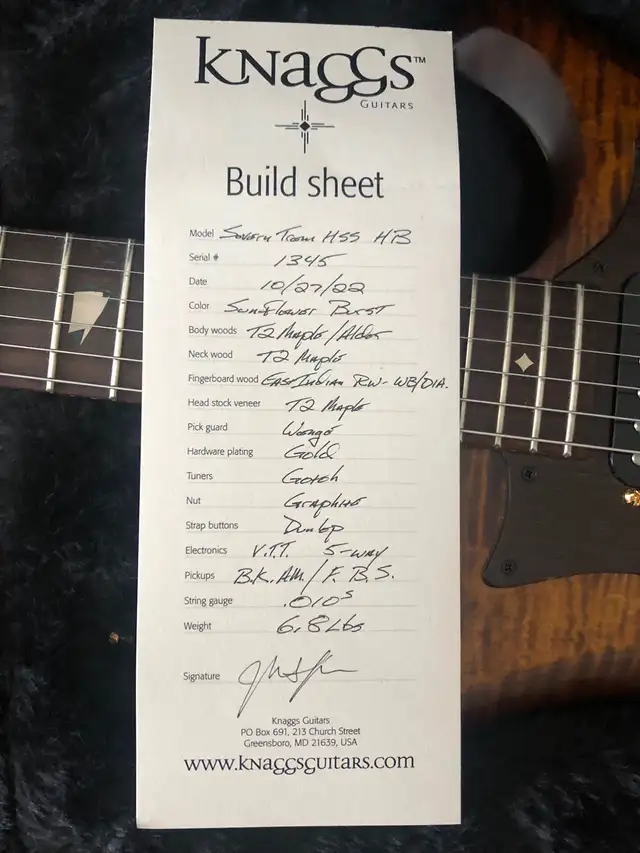 KNaGGS™
GUITARS
Build sheet
Model Severn Trem HSS HB
Serial # 1345
Date 10/27/22
Color Sunflower Burst
Body woods T2 Maple/Alder
Neck wood T2 Maple
Fingerboard wood East Indian RW- WB/DIA.
Head stock veneer T2 Maple
Pick guard Wenge
Hardware plating Gold
Tuners Gotoh
Nut Graphite
Strap buttons Dunlop
Electronics V.T.T. 5-way
Pickups B.K. AM./F. B.S.
String gauge .010s
Weight 6.8 Lbs
Signature
Knaggs Guitars
PO Box 691, 213 Church Street
Greensboro, MD 21639, USA
www.knaggsguitars.com